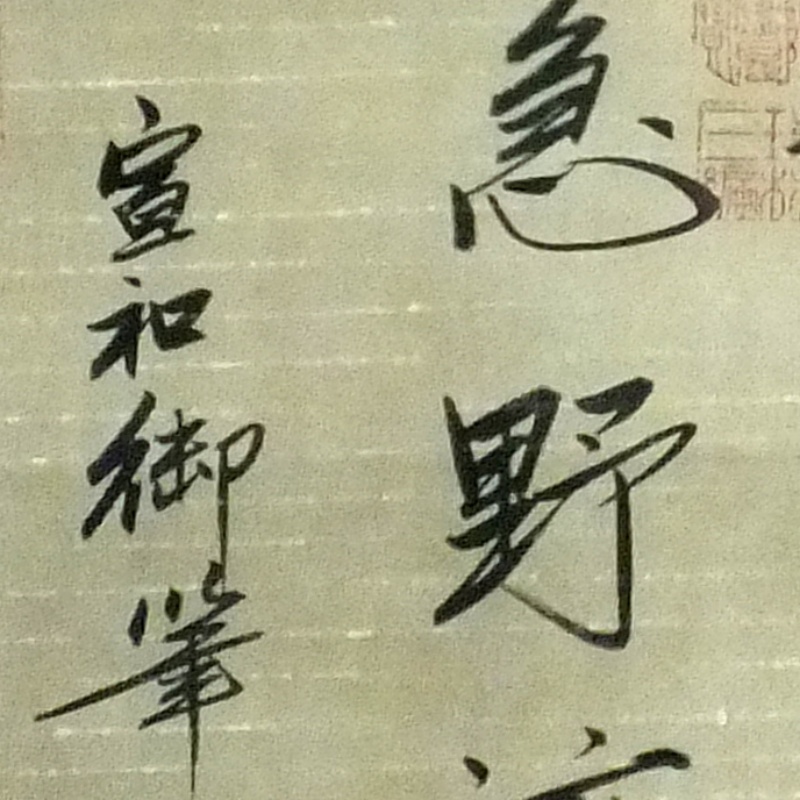 急野
宣和御筆